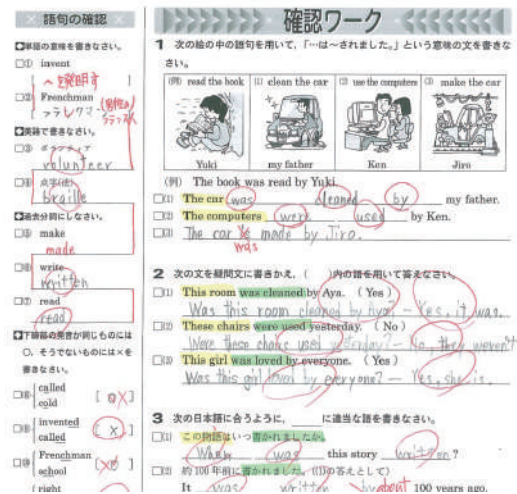 語句の確認
□単語の意味を書きなさい。
□① invent
[ ～を発明す
□② Frenchman
□英語で書きなさい。
□③ ボランティア
volunteer
□④ 点字(法)
braille
□過去分詞にしなさい。
□⑤ make
made
□⑥ write
written
□⑦ read
read
□下線部の発音が同じものには
○，そうでないものには×を
書きなさい。
□⑧ called
cold
□⑨ invented
called
[ × ]
□⑩ Frenchman
school
right
確認ワーク
1 次の絵の中の語句を用いて，「…は～されました。」という意味の文を書きな
さい。
(例) read the book
(1) clean the car
(2) use the computers
(3) make the car
Yuki
my father
Ken
Jiro
(例) The book was read by Yuki.
□(1) The car was cleaned by my father.
□(2) The computers were used by Ken.
□(3) The car is made by Jiro.
was
2 次の文を疑問文に書きかえ，( )内の語を用いて答えなさい。
□(1) This room was cleaned by Aya. ( Yes )
Was this room cleaned by Aya? — Yes, it was.
□(2) These chairs were used yesterday. ( No )
Were these chairs used yesterday? — No, they weren't
□(3) This girl was loved by everyone. ( Yes )
Was this girl loved by everyone? — Yes, she is.
3 次の日本語に合うように，____に適当な語を書きなさい。
□(1) この物語はいつ書かれましたか。
When was this story written ?
□(2) 約 100 年前に書かれました。((1)の答えとして)
It was written about 100 years ago.